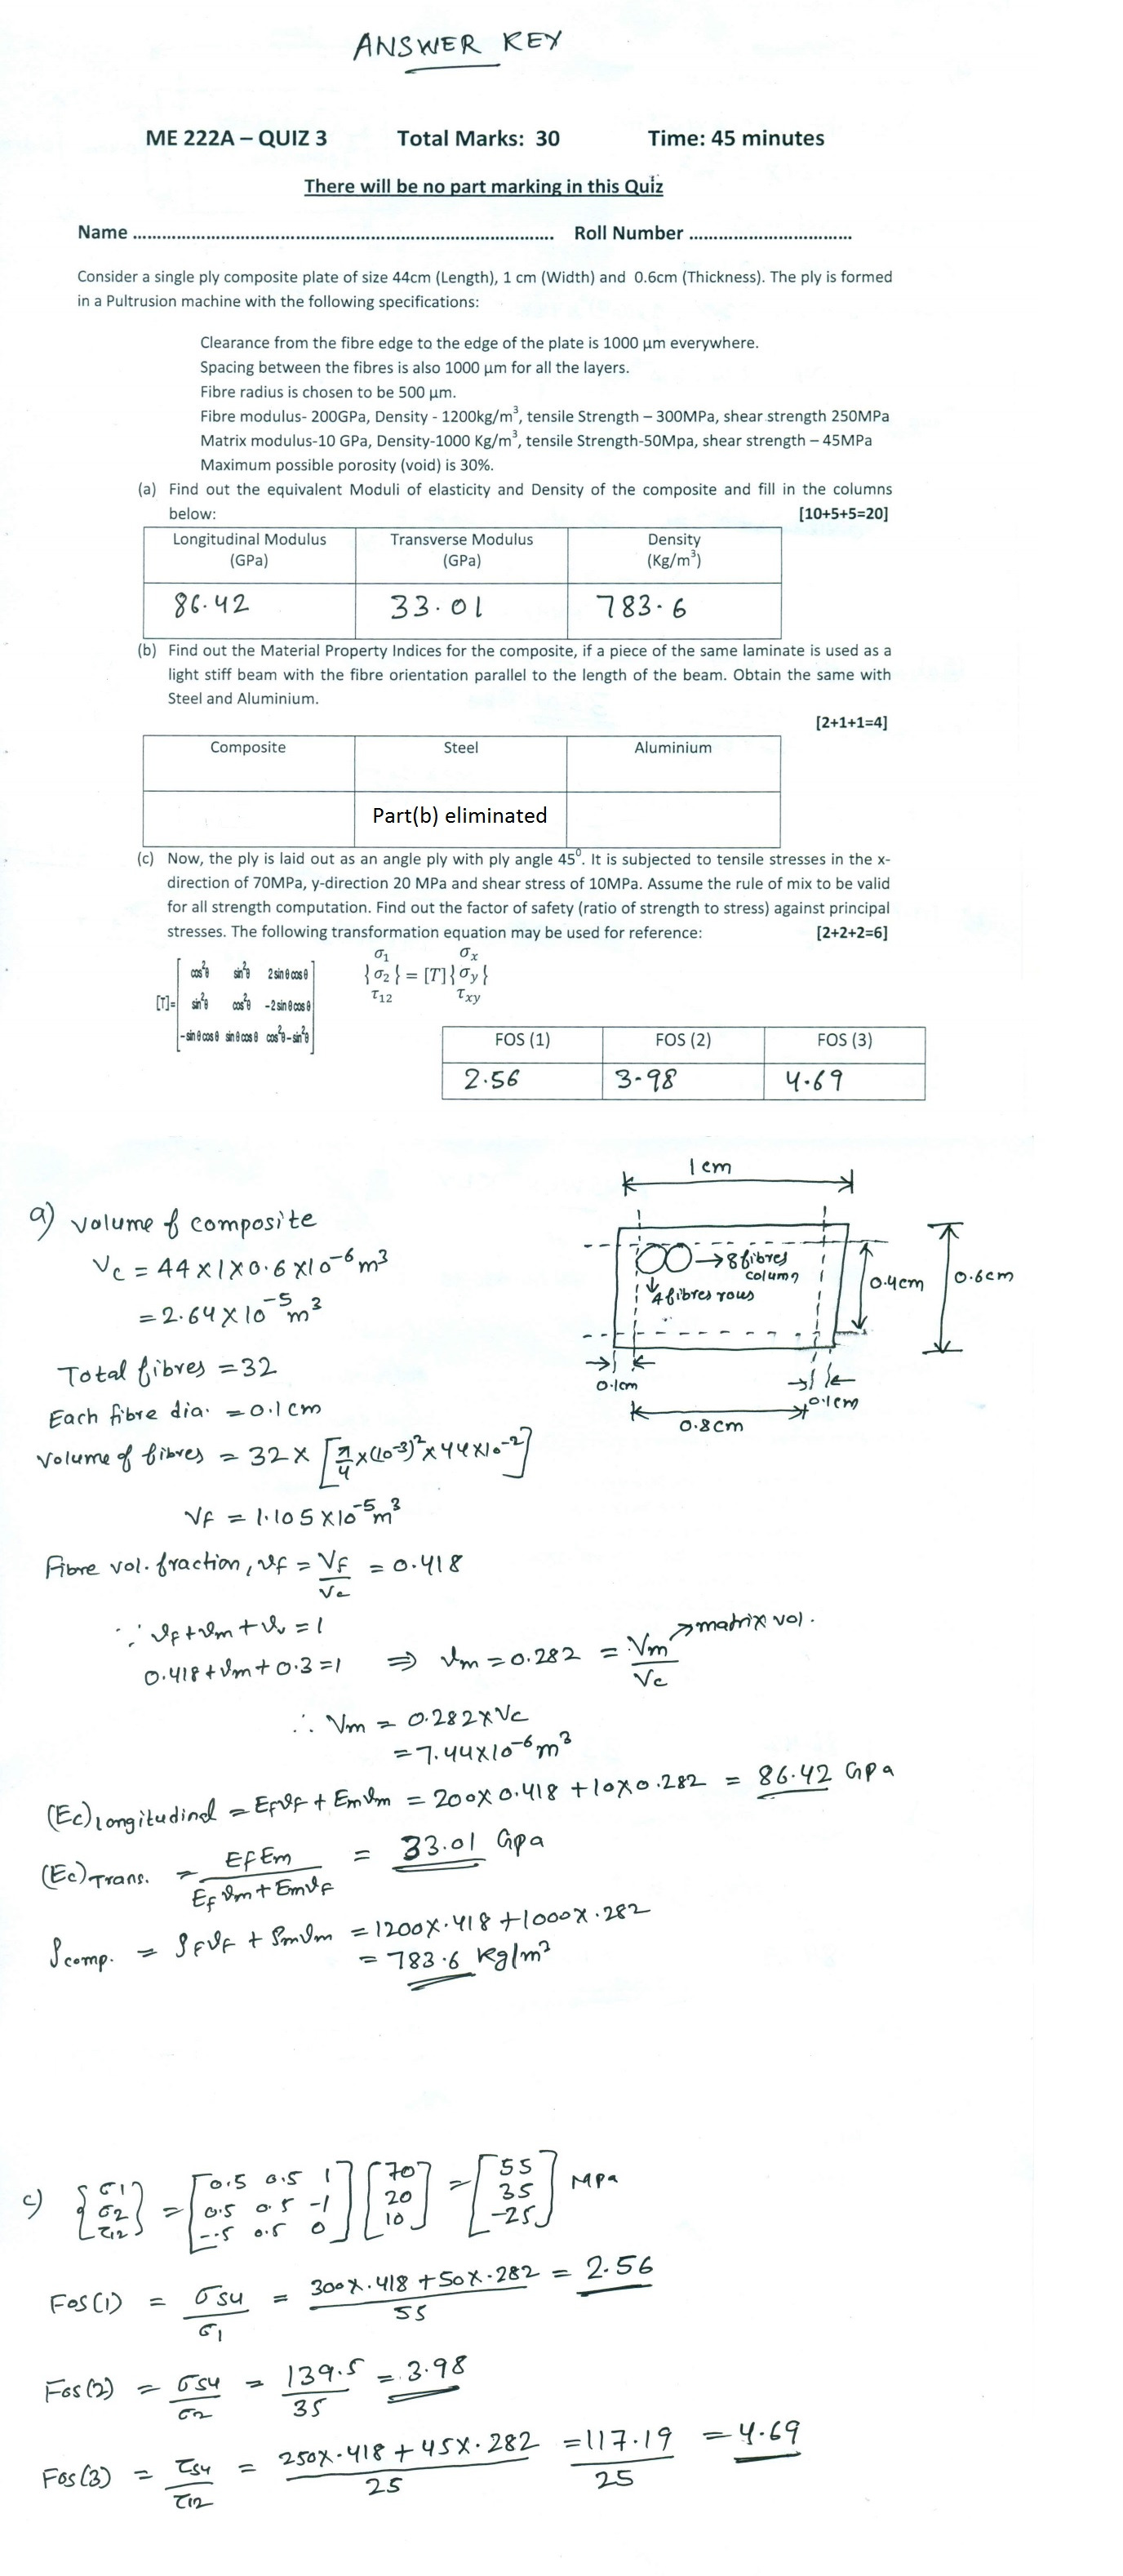 ANSWER KEY
ME 222A – QUIZ 3 Total Marks: 30 Time: 45 minutes
There will be no part marking in this Quiz
Name ........................................................................... Roll Number .................................
Consider a single ply composite plate of size 44cm (Length), 1 cm (Width) and 0.6cm (Thickness). The ply is formed
in a Pultrusion machine with the following specifications:
Clearance from the fibre edge to the edge of the plate is 1000 μm everywhere.
Spacing between the fibres is also 1000 μm for all the layers.
Fibre radius is chosen to be 500 μm.
Fibre modulus- 200GPa, Density - 1200kg/m³, tensile Strength – 300MPa, shear strength 250MPa
Matrix modulus-10 GPa, Density-1000 Kg/m³, tensile Strength-50Mpa, shear strength – 45MPa
Maximum possible porosity (void) is 30%.
(a) Find out the equivalent Moduli of elasticity and Density of the composite and fill in the columns
below: [10+5+5=20]
Longitudinal Modulus (GPa) Transverse Modulus (GPa) Density (Kg/m³)
86.42 33.01 783.6
(b) Find out the Material Property Indices for the composite, if a piece of the same laminate is used as a
light stiff beam with the fibre orientation parallel to the length of the beam. Obtain the same with
Steel and Aluminium.
[2+1+1=4]
Composite Steel Aluminium
Part(b) eliminated
(c) Now, the ply is laid out as an angle ply with ply angle 45⁰. It is subjected to tensile stresses in the x-
direction of 70MPa, y-direction 20 MPa and shear stress of 10MPa. Assume the rule of mix to be valid
for all strength computation. Find out the factor of safety (ratio of strength to stress) against principal
stresses. The following transformation equation may be used for reference: [2+2+2=6]
[T]= [cos²θ sin²θ 2sinθcosθ
sin²θ cos²θ -2sinθcosθ
-sinθcosθ sinθcosθ cos²θ-sin²θ]
σ₁ σₓ
{σ₂} = [T]{σy}
τ₁₂ τxy
FOS (1) FOS (2) FOS (3)
2.56 3.98 4.69
1cm
→8fibres
column
↓
4 fibres rows
0.4cm
0.6cm
0.1cm
0.1cm
0.8cm
a) volume of composite
Vc = 44×1×0.6×10⁻⁶m³
= 2.64×10⁻⁵m³
Total fibres = 32
Each fibre dia. = 0.1cm
volume of fibres = 32×[π/4×(10⁻³)²×44×10⁻²]
Vf = 1.105×10⁻⁵m³
Fibre vol. fraction, vf = Vf/Vc = 0.418
∵ vf+vm+vv = 1
0.418+vm+0.3=1 ⇒ vm=0.282 = Vm/Vc →matrix vol.
∴ Vm = 0.282×Vc
= 7.44×10⁻⁶m³
(Ec)longitudinal = Efvf + Emvm = 200×0.418 + 10×0.282 = 86.42 GPa
(Ec)Trans. = EfEm/(Efvm+Emvf) = 33.01 Gpa
ρcomp. = ρfvf + ρmvm = 1200×.418+1000×.282
= 783.6 Kg/m³
c) {σ1 σ2 τ12} = [0.5 0.5 1
0.5 0.5 -1
-.5 0.5 0] [70 20 10] = [55 35 -25] MPa
Fos(1) = σsu/σ1 = (300×.418+50×.282)/55 = 2.56
Fos(2) = σsu/σ2 = 139.5/35 = 3.98
Fos(3) = τsu/τ12 = (250×.418+45×.282)/25 = 117.19/25 = 4.69